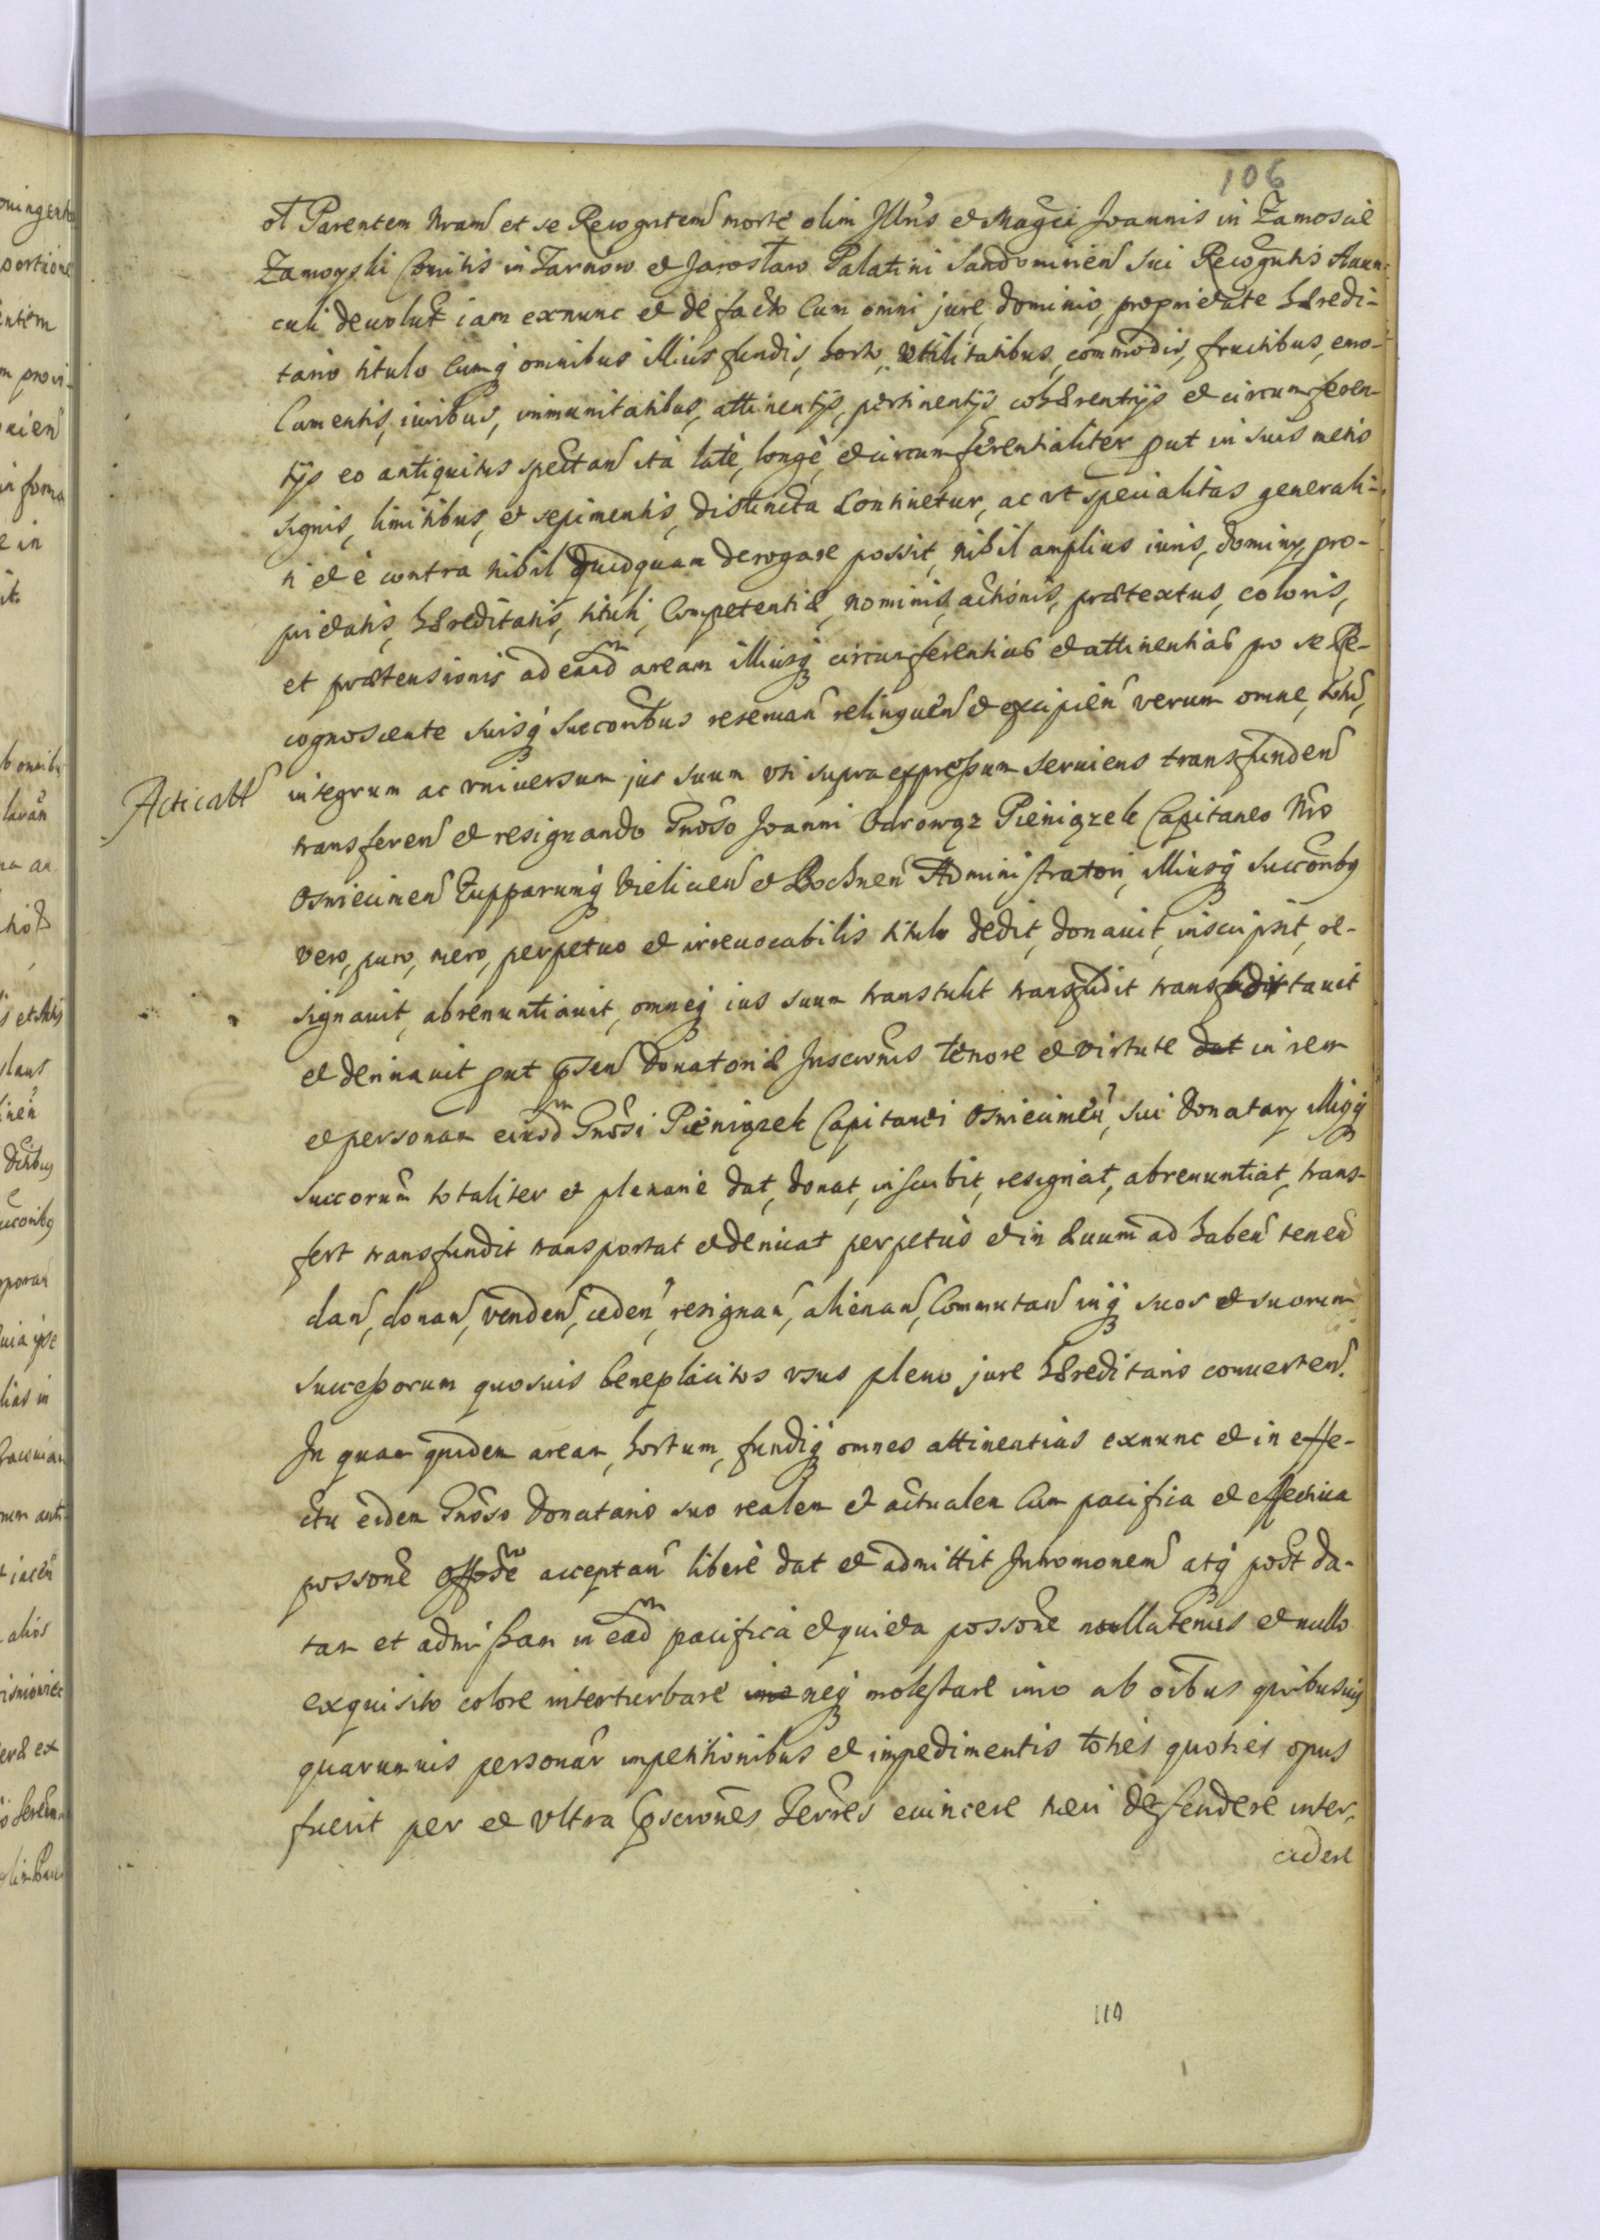 106
Parentem Nram et se Recogntem morte olim Illris et Magci Joannis in Zamoscie
Zamoyski Comitis in Tarnow et Jarosław Palatini Sandomirien sui Recogntis Auun-
culi deuolut iam exnunc et de facto cum omni jure, dominio, proprietate hæredi-
tario titulo cumq omnibus illius fundis, horto, vtilitatibus, commodis, fructibus, emo-
lumentis, iuribus, immunitatibus, attinentijs, pertinentijs cohærentijs et circumferen-
tijs eo antiquitus spectan ita latè, longè, et circumferentialiter put in suis metis
signis, limitibus, et sepimentis, distincta continetur, ac vt specialitas generali-
ti et è contra nihil quidquam derogare possit, nihil amplius iuris, dominij, pro-
prietatis, hæreditatis, tituli, competentiæ, nominis, actionis, prætextus, coloris,
et prætensionis ad eand aream illiusq circumferentias et attinentias pro se Re-
cognoscente suisq succoribus reseruan relinquen et excipien verum omne, totu,
integrum ac vniuersum jus suum vti supra expressum seruiens transfunden
Acticatt
transferen et resignando Gnoso Joanni Odrowąz Pieniązek Capitaneo Nro
Osniecimen Zupparumq Vielicen et Bochnen Administratori, illiusq succoribq
vero, puro, mero, perpetuo et irreuocabilis titulo dedit, donauit, inscripsit, re-
signauit, abrenuntiauit, omneq ius suum transtulit transfudit tauit
et deriuauit put psen Donatoriæ Inscronis tenore et virtute dat in rem
et personam eiusd Gnosi Pieniązek Capitanei Osniecimen, sui Donatarij illiqq
succorum totaliter et plenariè dat, donat, inscribit, resignat, abrenuntiat, trans-
fert transfundit transportat et deriuat perpetuò et in æuum ad haben tenen
dan, donan, venden, ceden, resignan, alienan, commutan inq suos et suorum
successorum quosuis beneplacitos vsus pleno jure hæreditario conuerten.
In quam quidem aream, hortum, fundiq omnes attinentias exnunc et in effe-
ctu eidem Gnoso Donatario suo realem et actualem cum pacifica et effectiua
possone acceptan liberè dat et admittit Intromonem atq post da-
tam et admissam in ead pacifica et quieta possone nullatenus et nullo
exquisito colore interturbare imo neq molestare imo ab oibus quibusuis
quarumuis personar impetitionibus et impedimentis toties quoties opus
fuerit per et vltra pscriones terres euincere tueri defendere inter-
cedere
110